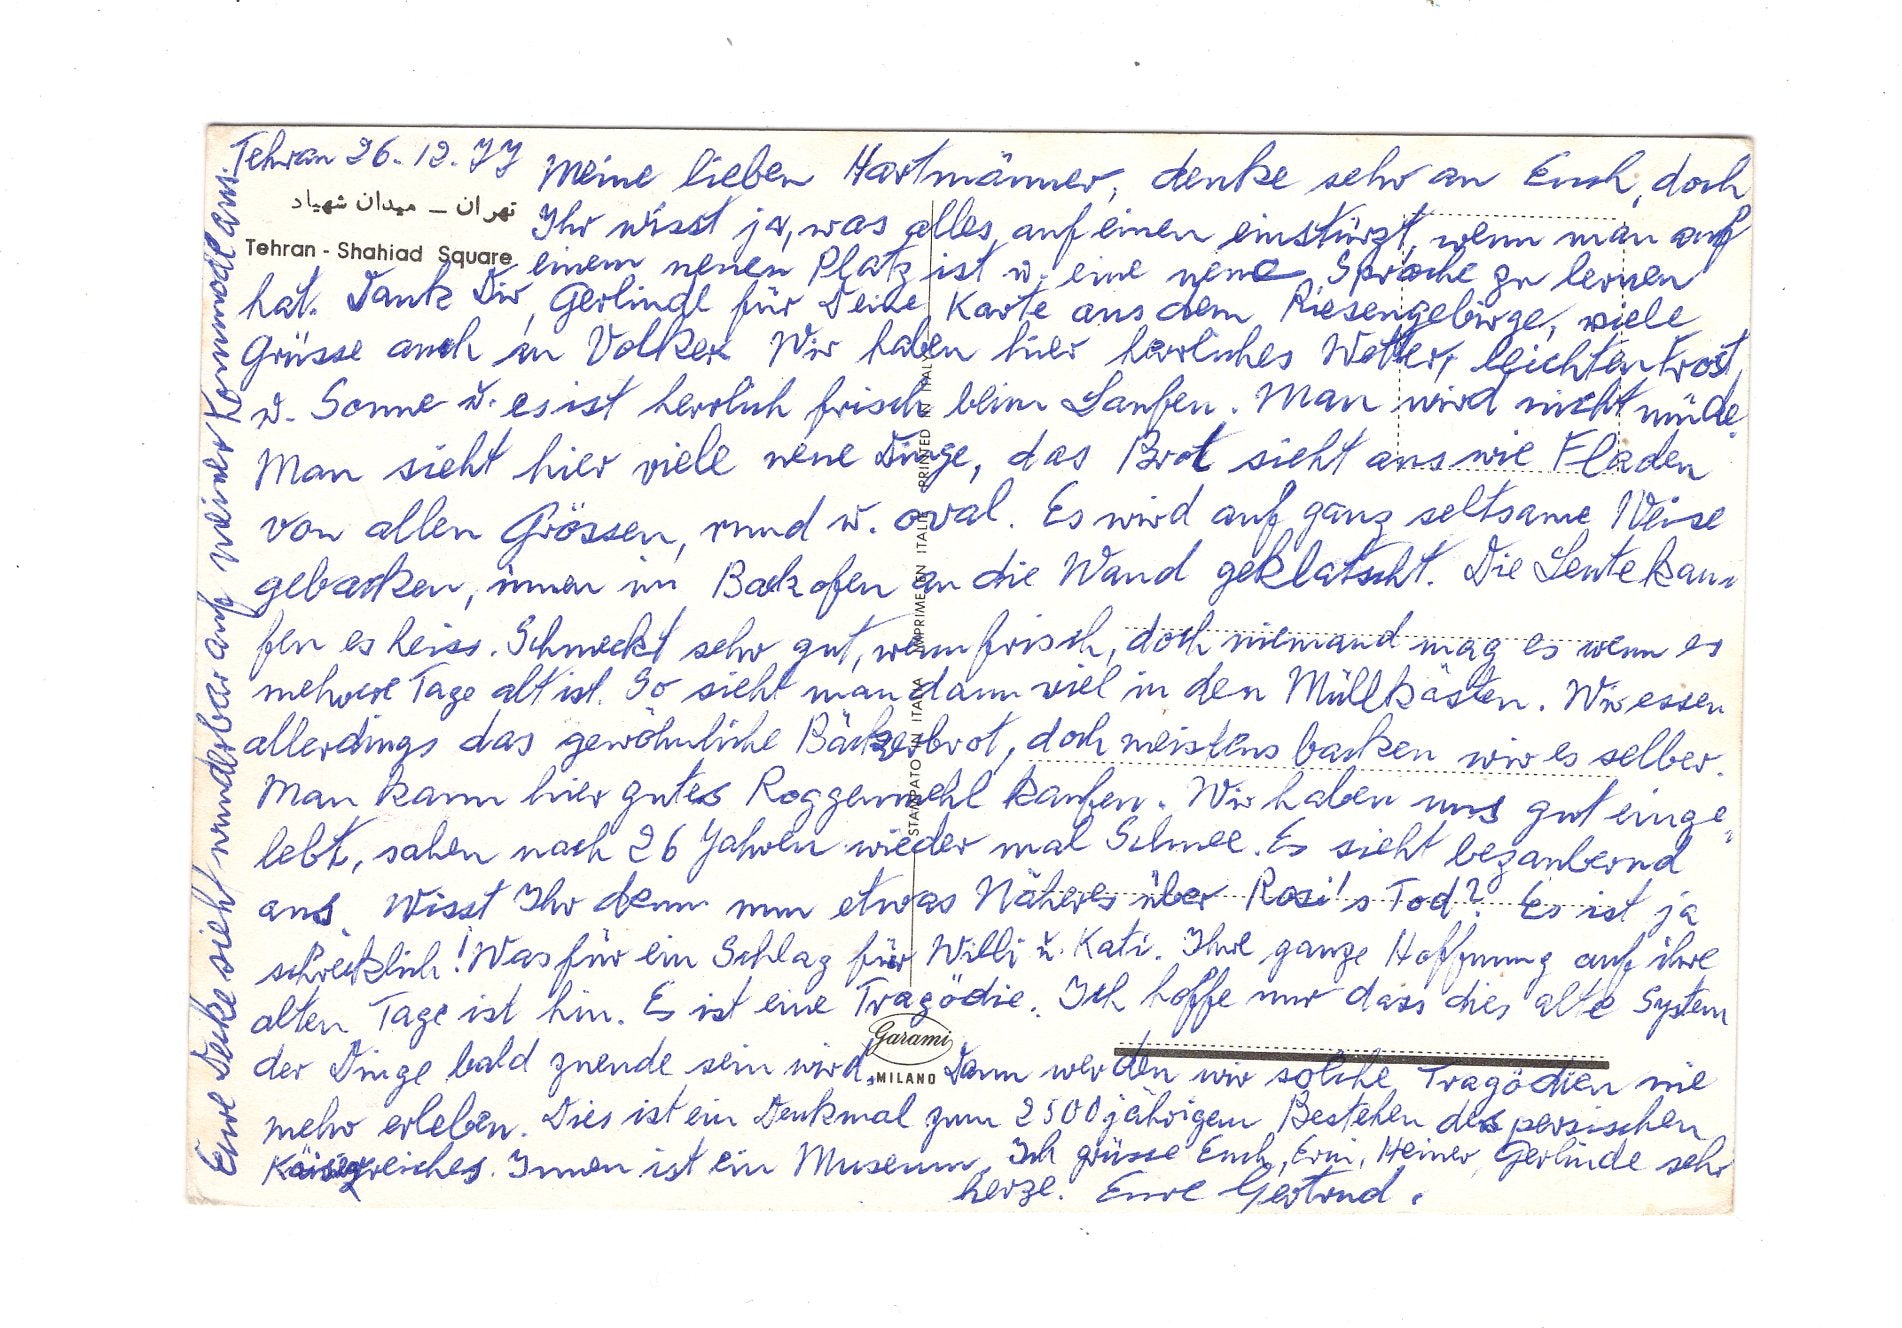 Tehran 26.12.77
تهران – میدان شهیاد
Tehran - Shahiad Square
Meine lieben Hartmänner, denke sehr an Euch, doch
Ihr wisst ja, was alles auf einen einstürzt, wenn man auf
einem neuen Platz ist u. eine neue Sprache zu lernen
hat. Dank Dir, Gerlinde für Deine Karte aus dem Riesengebirge, viele
Grüsse auch an Volker. Wir haben hier herrliches Wetter, leichten Frost,
u. Sonne u. es ist herrlich frisch beim Laufen. Man wird nicht müde.
Man sieht hier viele neue Dinge, das Brot sieht aus wie Fladen
von allen Grössen, rund u. oval. Es wird auf ganz seltsame Weise
gebacken, innen im Backofen an die Wand geklatscht. Die Leute kau-
fen es heiss. Schmeckt sehr gut, wenn frisch, doch niemand mag es wenn es
mehrere Tage alt ist. So sieht man dann viel in den Müllkästen. Wir essen
allerdings das gewöhnliche Bäckerbrot, doch meistens backen wir es selber.
Man kann hier gutes Roggenmehl kaufen. Wir haben uns gut einge-
lebt, sahen nach 26 Jahren wieder mal Schnee. Es sieht bezaubernd
aus. Wisst Ihr denn nun etwas Näheres über Rosi's Tod? Es ist ja
schrecklich! Was für ein Schlag für Willi u. Kati. Ihre ganze Hoffnung auf ihre
alten Tage ist hin. Es ist eine Tragödie. Ich hoffe nur dass dies alte System
der Dinge bald zuende sein wird. Dann werden wir solche Tragödien nie
mehr erleben. Dies ist ein Denkmal zum 2500jährigem Bestehen des persischen
Kaiserreiches. Innen ist ein Museum. Ich grüsse Euch, Erni, Heiner, Gerlinde sehr
herzl. Eure Gertrud.
Eure Decke sieht wunderbar auf meiner Kommode aus.
STAMPATO IN ITALIA IMPRIME EN ITALIE PRINTED IN ITALY
Garami
MILANO